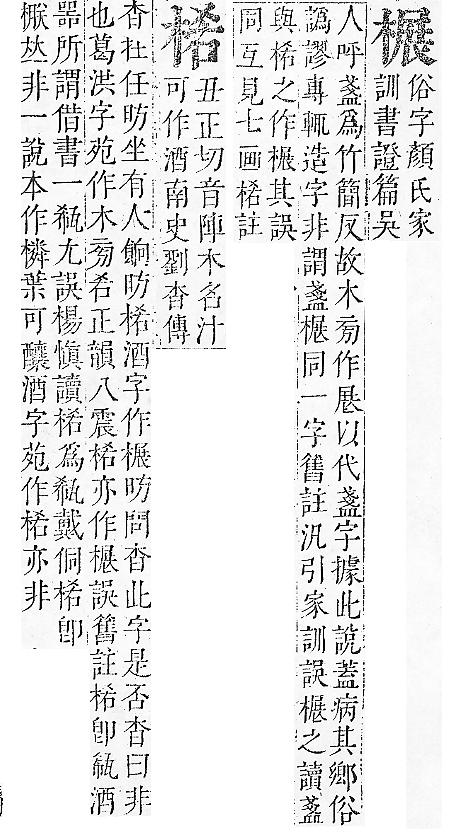 榐
俗字顏氏家
訓書證篇吳
人呼盞爲竹簡反故木旁作展以代盞字據此說蓋病其鄉俗
譌謬專輒造字非謂盞榐同一字舊註汎引家訓誤榐之讀盞
與桸之作榐其誤
同互見七画桸註
桸
丑正切音陣木名汁
可作酒南史劉杳傳
杳杜任昉坐有人餉昉桸酒字作榐昉問杳此字是否杳曰非
也葛洪字苑作木旁希正韻八震桸亦作榐誤舊註桸卽瓻酒
噐所謂借書一瓻尤誤楊愼讀桸爲瓻戴侗桸卽
夶非一說本作橉葉可釀酒字苑作桸亦非